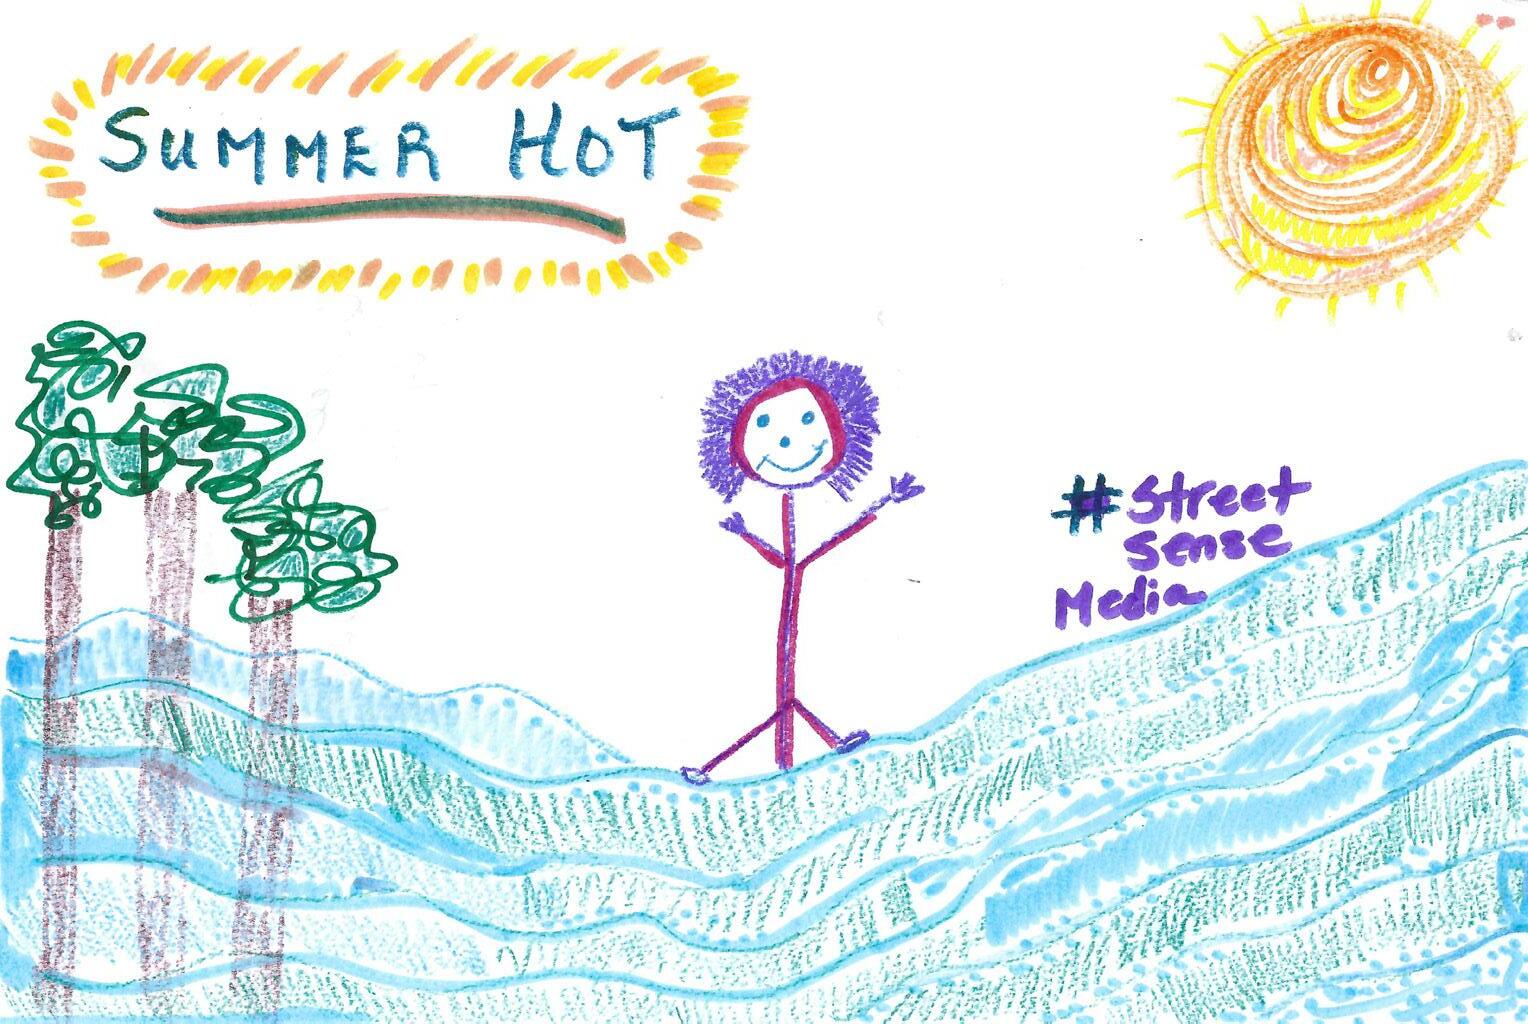 SUMMER HOT
#Street
Sense
Media